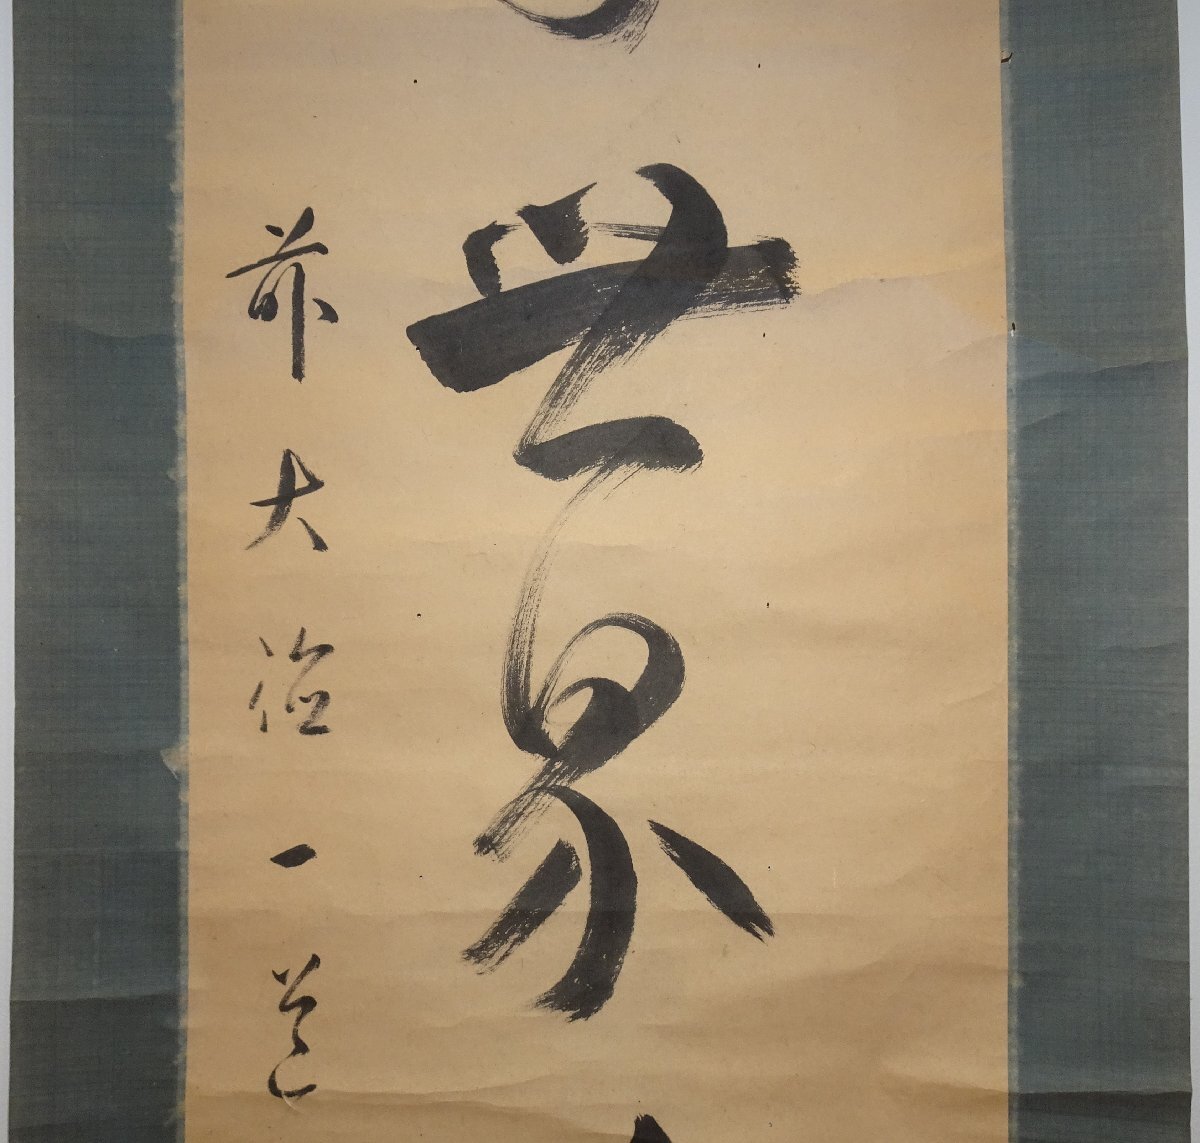 世界
前大徳一道